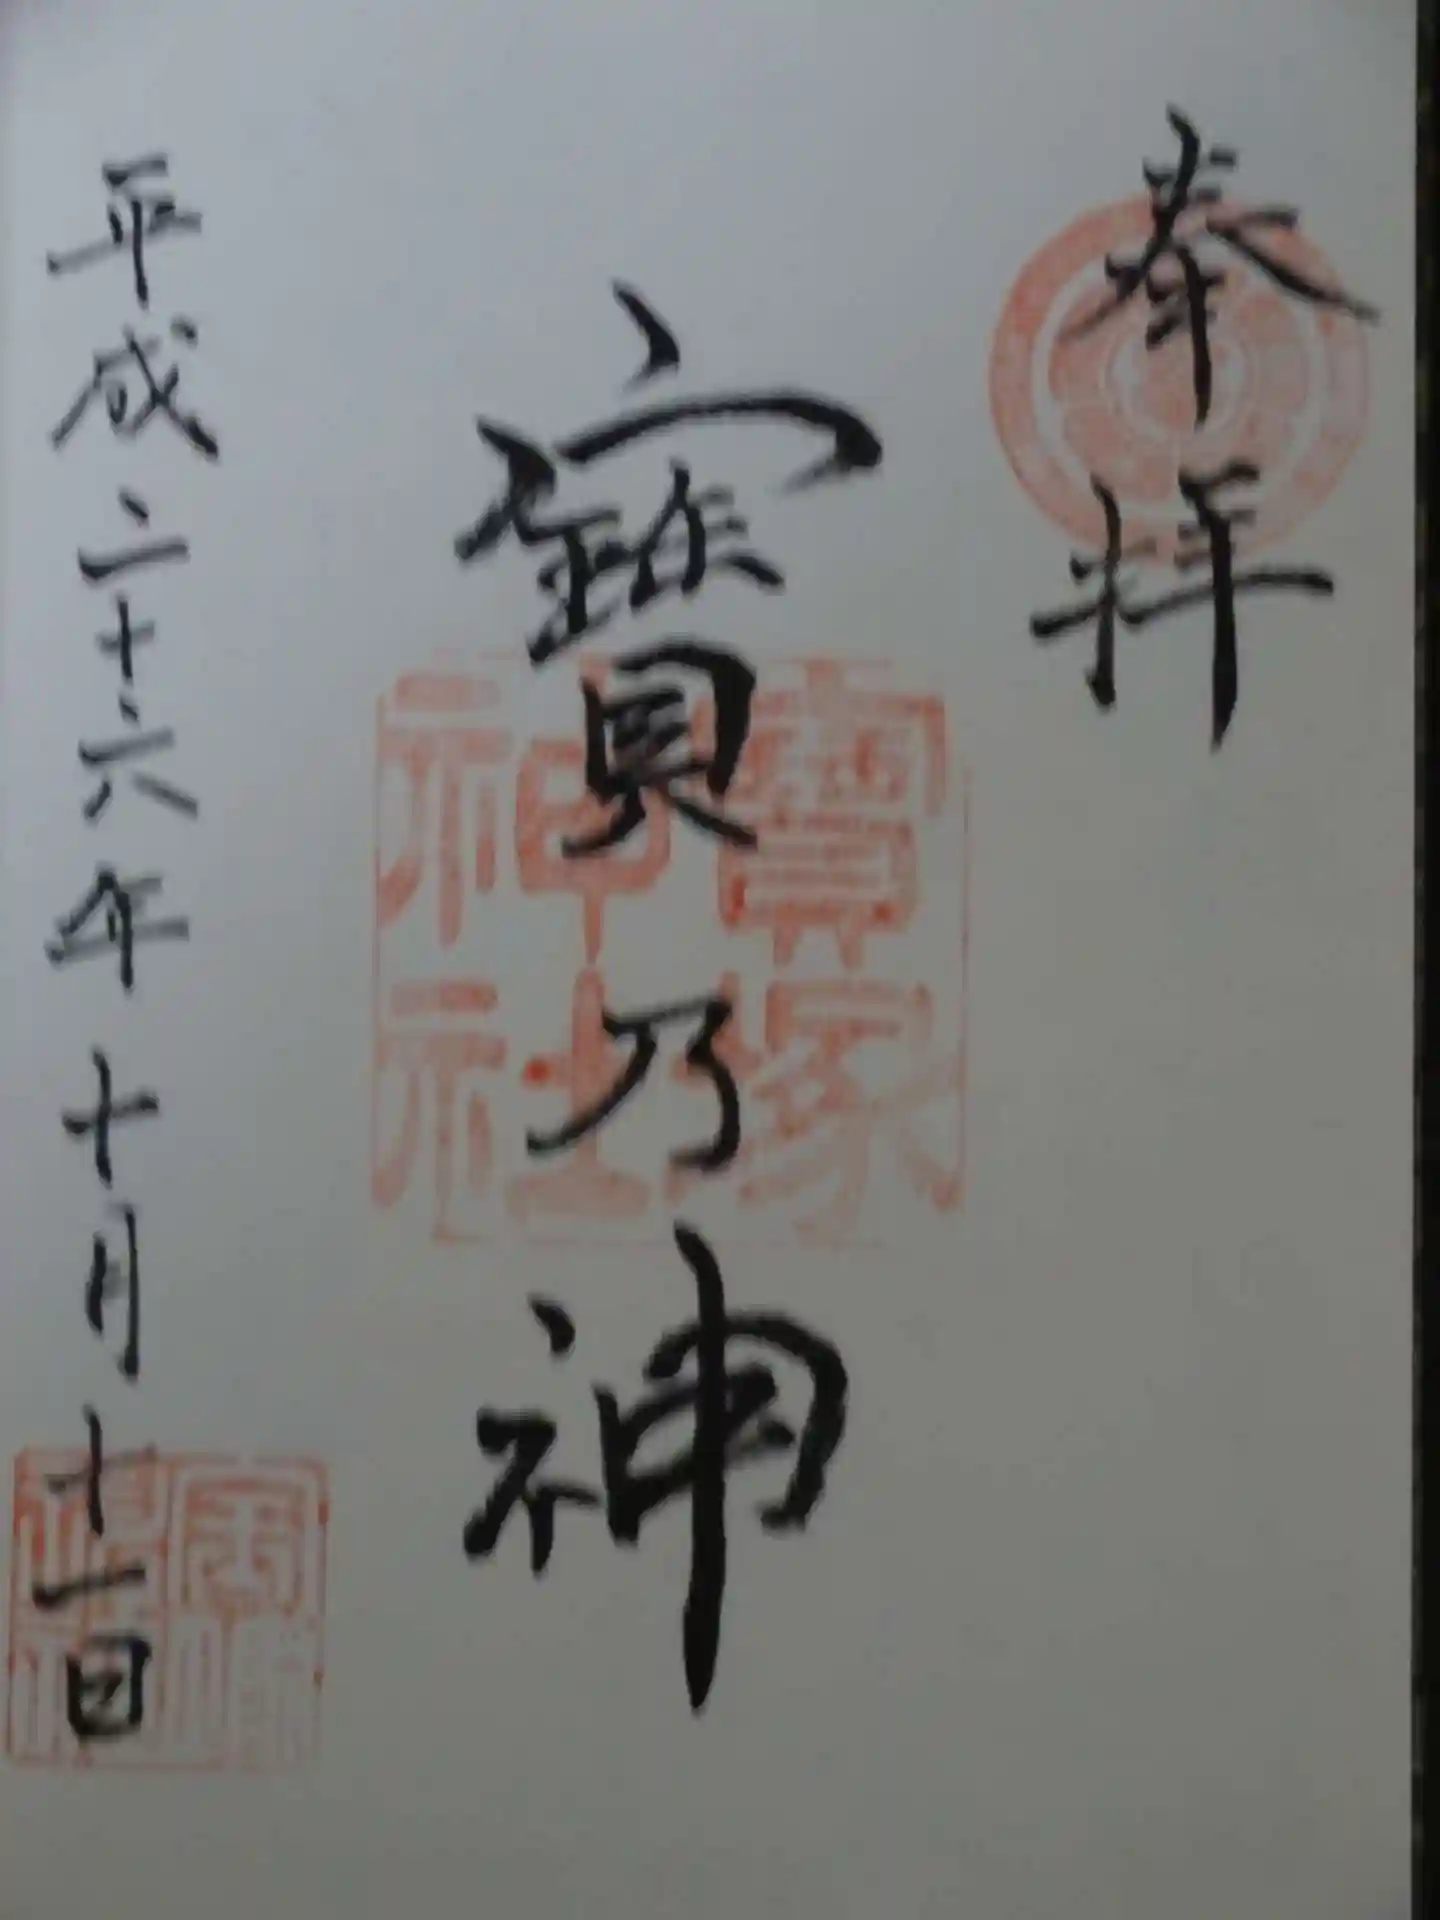 奉拝
寳乃神
寳塚
神社
平成二十六年十月十一日